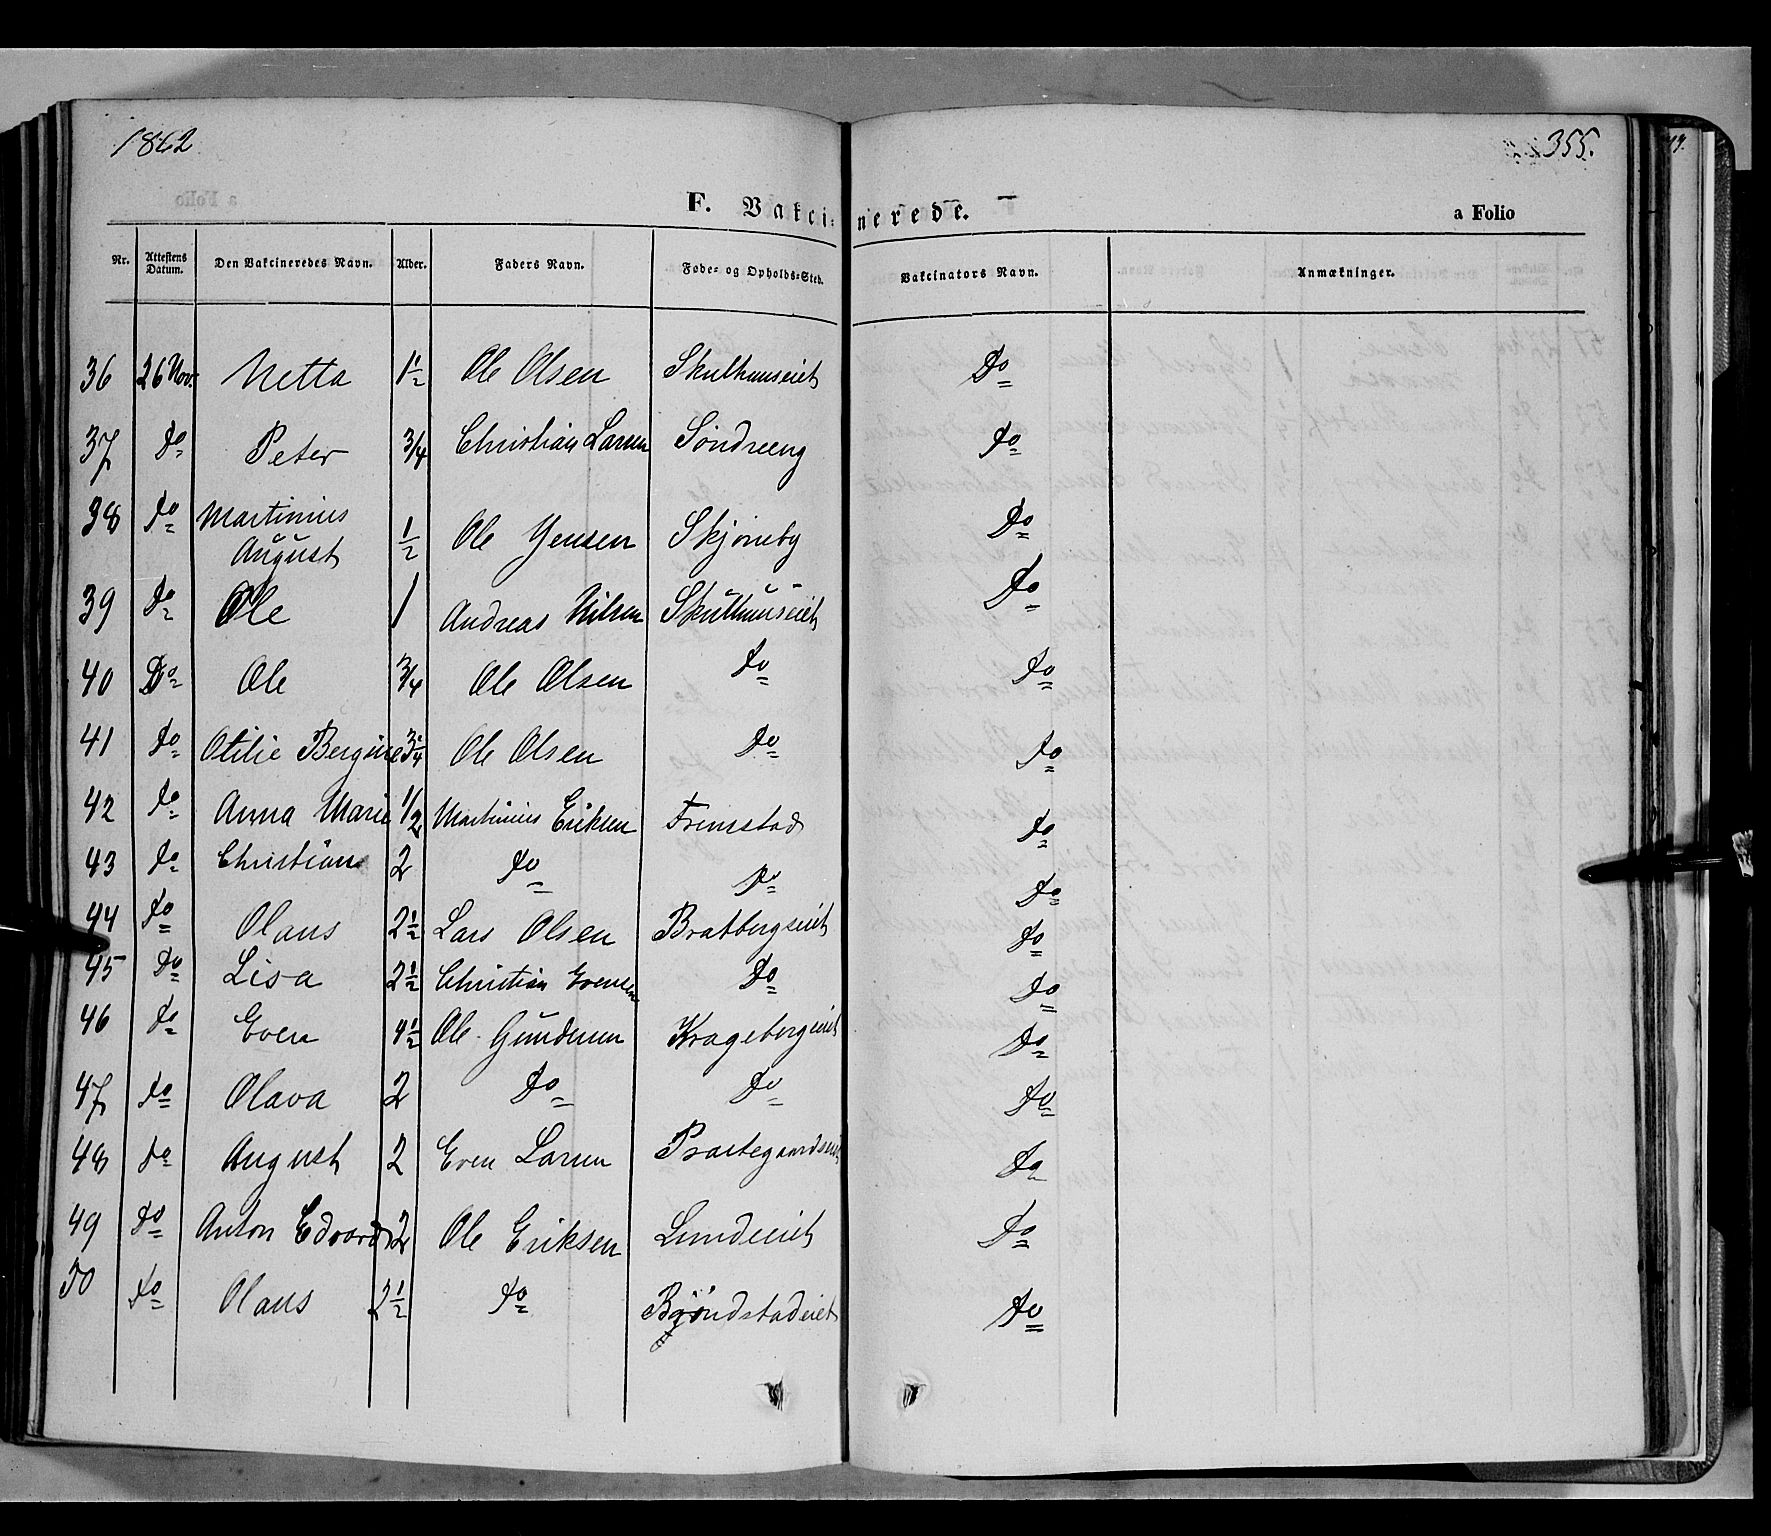 1862
355.
F. Vakcinerede.
a Folio
Nr. Attestens Datum. Den Vakcineredes Navn. Alder. Faders Navn. Føde- og Opholds-Sted. Vakcinators Navn. Anmærkninger.
36 26 Nov. Netta 1½ Ole Olsen Skulhuuseiet Do
37 Do Peter 3/4 Christian Larsen Söndreeng Do
38 Do Martinius
August ½ Ole Jensen Skjörneby Do
39 Do Ole 1 Andreas Nilsen Skulhuuseiet Do
40 Do Ole 3/4 Ole Olsen Do Do
41 Do Otilie Bergine 3/4 Ole Olsen Do Do
42 Do Anna Marie 1/2 Martinius Eriksen Fremstad Do
43 Do Christian 2 Do Do Do
44 Do Olaus 2½ Lars Olsen Bratbergseiet Do
45 Do Lisa 2½ Christian Evensen Do Do
46 Do Even 4½ Ole Gundersen Krageborgeiet Do
47 Do Olava 2 Do Do Do
48 Do August 2 Even Larsen Præstegaardseiet Do
49 Do Anton Edvard 2 Ole Eriksen Lundeeiet Do
50 Do Olaus 2½ Do Bjöndstadeiet Do